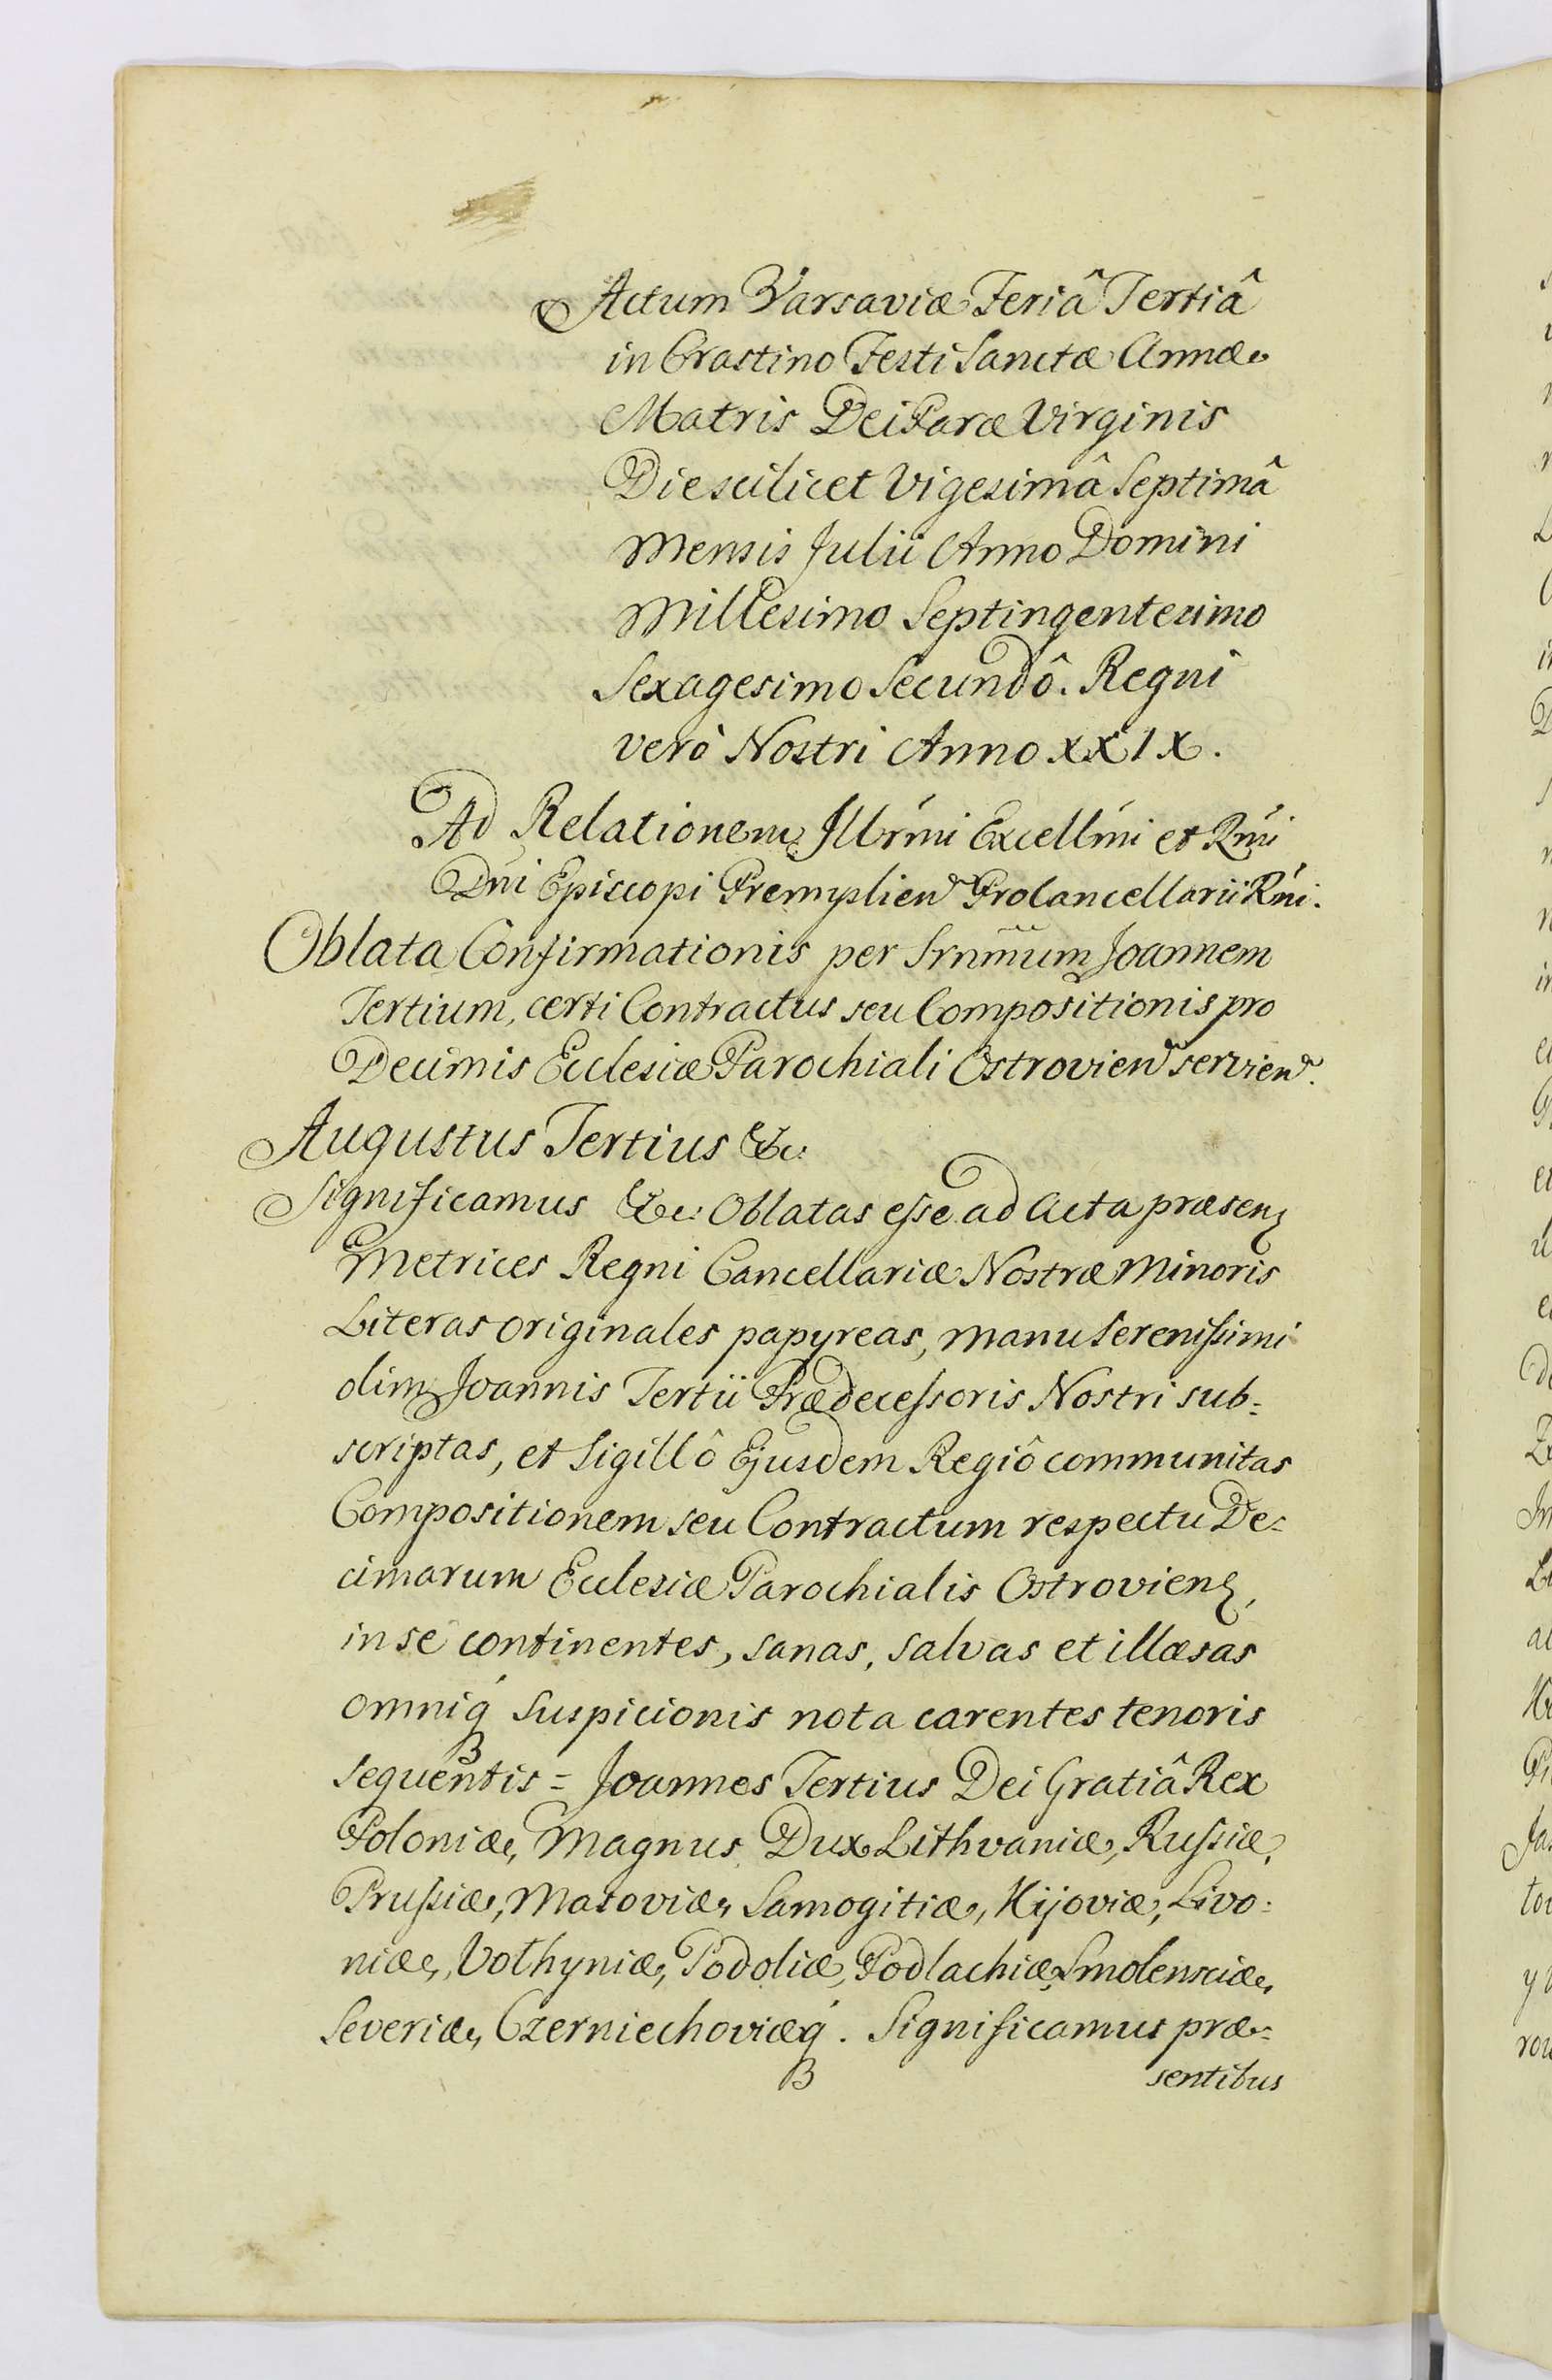 Actum Varsaviæ Feriâ Tertiâ
in Crastino Festi Sanctæ Annæ
Matris DeiParæ Virginis
Die scilicet Vigesimâ Septimâ
Mensis Julii Anno Domini
Millesimo Septingentesimo
Sexagesimo Secundô. Regni
verò Nostri Anno XXIX.
Ad Relationem Illrmi Excellmi et Rmi
Dni Episcopi Premyslien Procancellarii Rni.
Oblata Confirmationis per Srnmum Joannem
Tertium, certi Contractus seu Compositionis pro
Decimis Ecclesiæ Parochiali Ostrovien servien.
Augustus Tertius &c.
Significamus &c. Oblatas esse ad Acta præsen
Metrices Regni Cancellariæ Nostræ Minoris
Literas originales papyreas, manu Serenissimi
olim Joannis Tertii Prædecessoris Nostri sub=
scriptas, et Sigillô Ejusdem Regiô communitas
Compositionem seu Contractum respectu De=
cimarum Ecclesiæ Parochialis Ostrovien,
in se continentes, sanas, salvas et illæsas
omniq suspicionis nota carentes tenoris
sequentis = Joannes Tertius Dei Gratiâ Rex
Poloniæ, Magnus Dux Lithvaniæ, Russiæ,
Prussiæ, Masoviæ, Samogitiæ, Kijoviæ, Livo=
niæ, Volhyniæ, Podoliæ, Podlachiæ, Smolensciæ,
Severiæ, Czerniechoviæq. Significamus præ=
sentibus